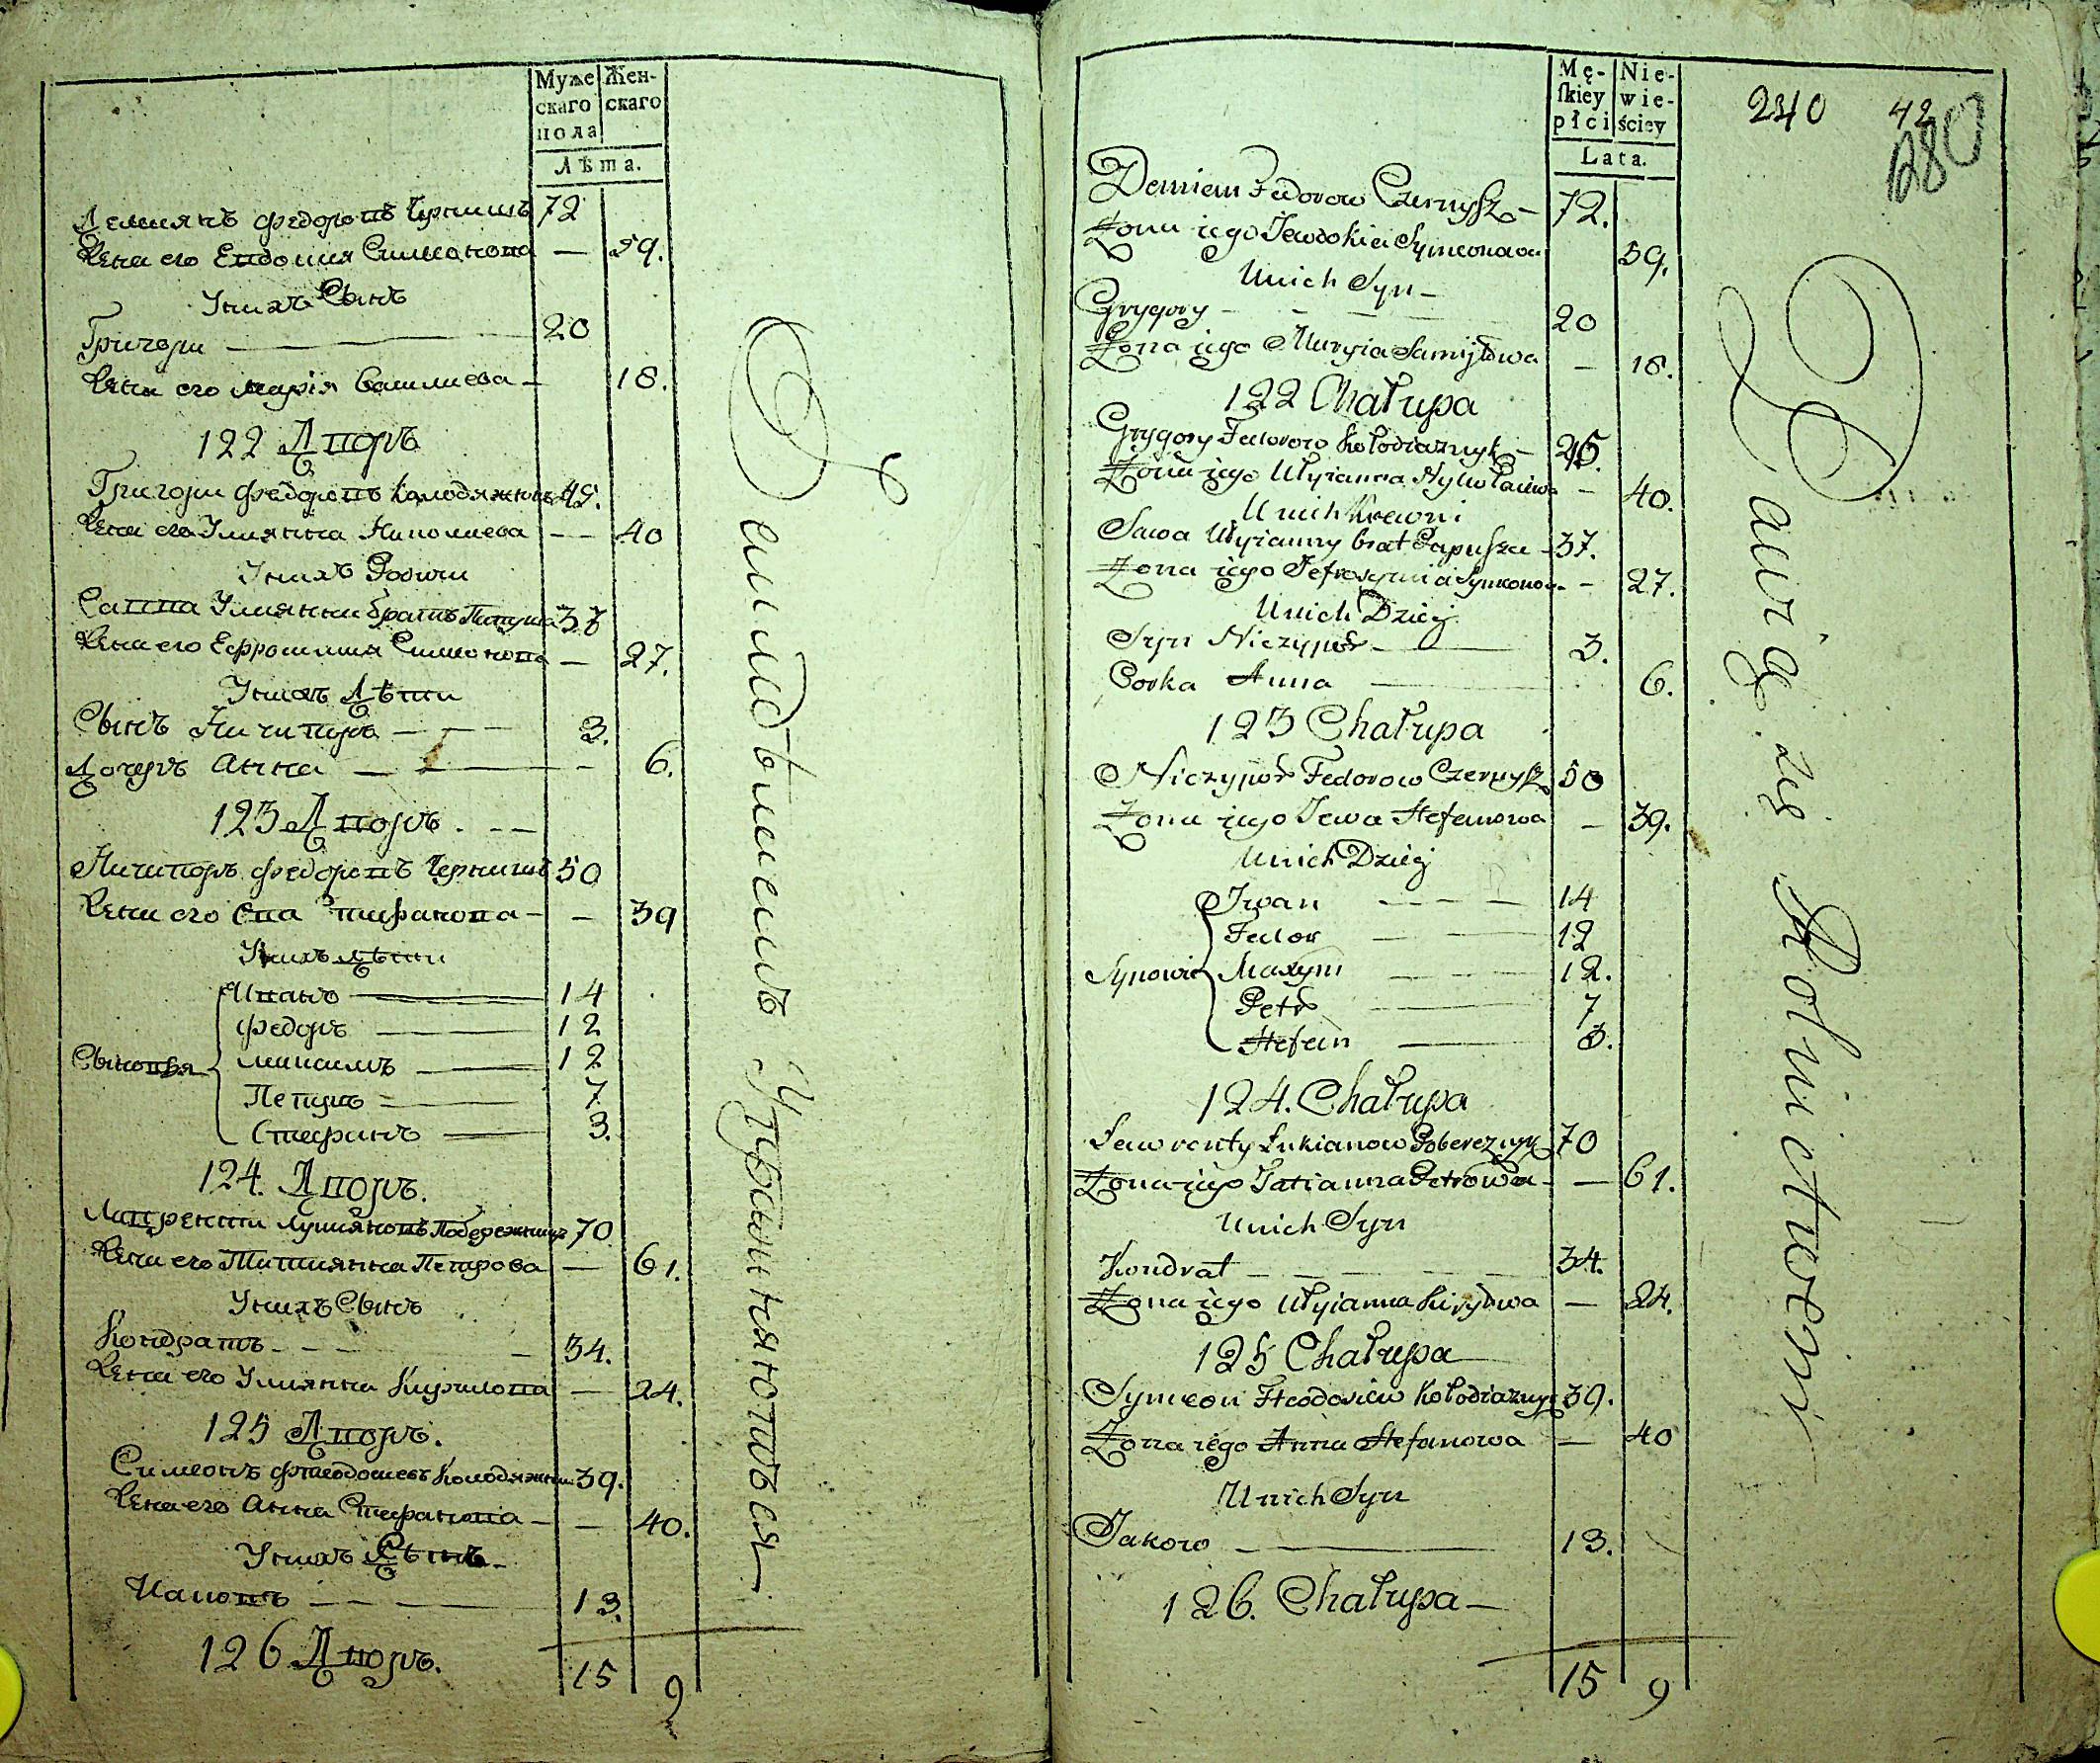 Муже
скаго
пола
Жен-
скаго
Лѣта.
Демиянъ Федоровъ Чернишъ 72
Жена его Евдокия Симионова — 59.
У нихъ Сынъ
Григори — 20
Жена его Марія Самилиева — 18.
122 Дворъ
Григори Федоровъ Колодяжныкъ 45.
Жена его Улиянна Николиева — — 40
У нихъ Родичи
Савва Улиянни братъ Папуша 37
Жена его Ефросиния Симионова — 27.
У нихъ Дѣти
Сынъ Ничипоръ — — — 3.
Дочеръ Анна — — — 6.
123 Дворъ . — —
Ничипоръ Федоровъ Чернишъ 50
Жена его Ева Стифанова — — 39
У нихъ Дѣти
Иванъ — 14
Федоръ — 12
Сыновья Максимъ — 12
Петръ — 7
Стефанъ — 3.
124. Дворъ.
Лаврентии Лукияновъ Побережникъ 70
Жена его Татиянна Петрова — 61.
У нихъ Сынъ
Кондратъ — — — 34.
Жена его Улиянна Кирилова — 24.
125 Дворъ.
Симеонъ Фтеодосиевъ Колодяжни 39.
Жена его Анна Стефанова — — 40.
У нихъ Сынъ
Иаковъ — — — 13.
126 Дворъ.
15 9
Земледѣлиемъ Упражняютъся
Mę-
ſkiey
płci
Nie-
wie-
ściey
Lata.
240 42
280
Demian Fedorow Czernysz — 72.
Żona iego Jewdokia Symeonowa 59.
U nich Syn —
Grygory — — — 20
Żona iego Maryia Samiyłowa — 18.
122 Chałupa
Grygory Fedorow Kołodiaznyk — 45.
Żona iego Ulyianna Nykołaiewa — 40.
U nich Krewni
Sawa Ulyianny brat Papusza — 37.
Żona iego Jefrosynia Symeonowa — 27.
U nich Dzieci
Syn Niczypor — 3.
Corka Anna — 6.
123 Chałupa
Niczypor Fedorow Czernysz 50
Żona iego Jewa Stefanowa — 39.
U nich Dzieci
Iwan — — — 14
Fedor — — 12
Synowie Maxym — — 12.
Petr — 7
Stefan — 3.
124. Chałupa
Lawrenty Łukianow Pobereznyk 70
Żona iego Tatianna Petrowa — — 61.
U nich Syn
Kondrat — — — 34.
Żona iego Ulyianna Kiryłowa — 24.
125 Chałupa
Symeon Fteodosiew Kołodiaznyi 39.
Żona iego Anna Stefanowa — 40
U nich Syn
Jakow — 13.
126. Chałupa —
15 9
Bawią się Rolnictwem